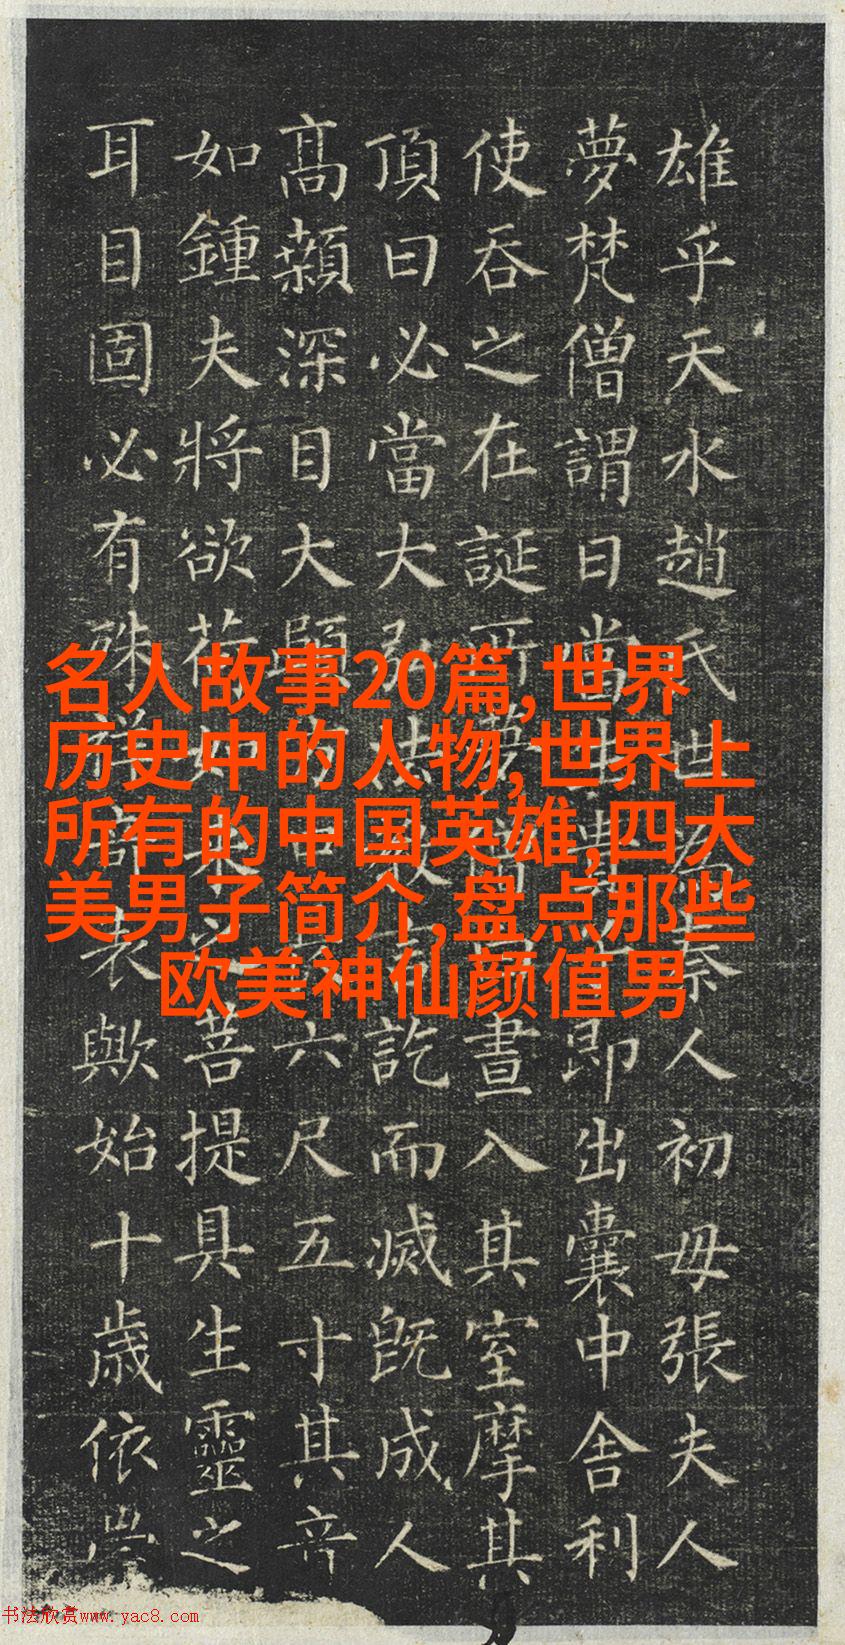 雄乎天水趙氏世為秦人初母張夫人
夢梵僧謂曰當生貴子即出囊中舍利
使吞之在誕所夢僧白晝入其室摩其
頂曰必當大弘法教言訖而滅既成人
高顙深目大頤方口長六尺五寸其音
如鍾夫將欲荷如來之菩提具生靈之
耳目固必有殊祥奇表歟始十歲依
名人故事20篇,世界
历史中的人物,世界上
所有的中国英雄,四大
美男子简介,盘点那些
欧美神仙颜值男
书法欣赏www.yac8.com